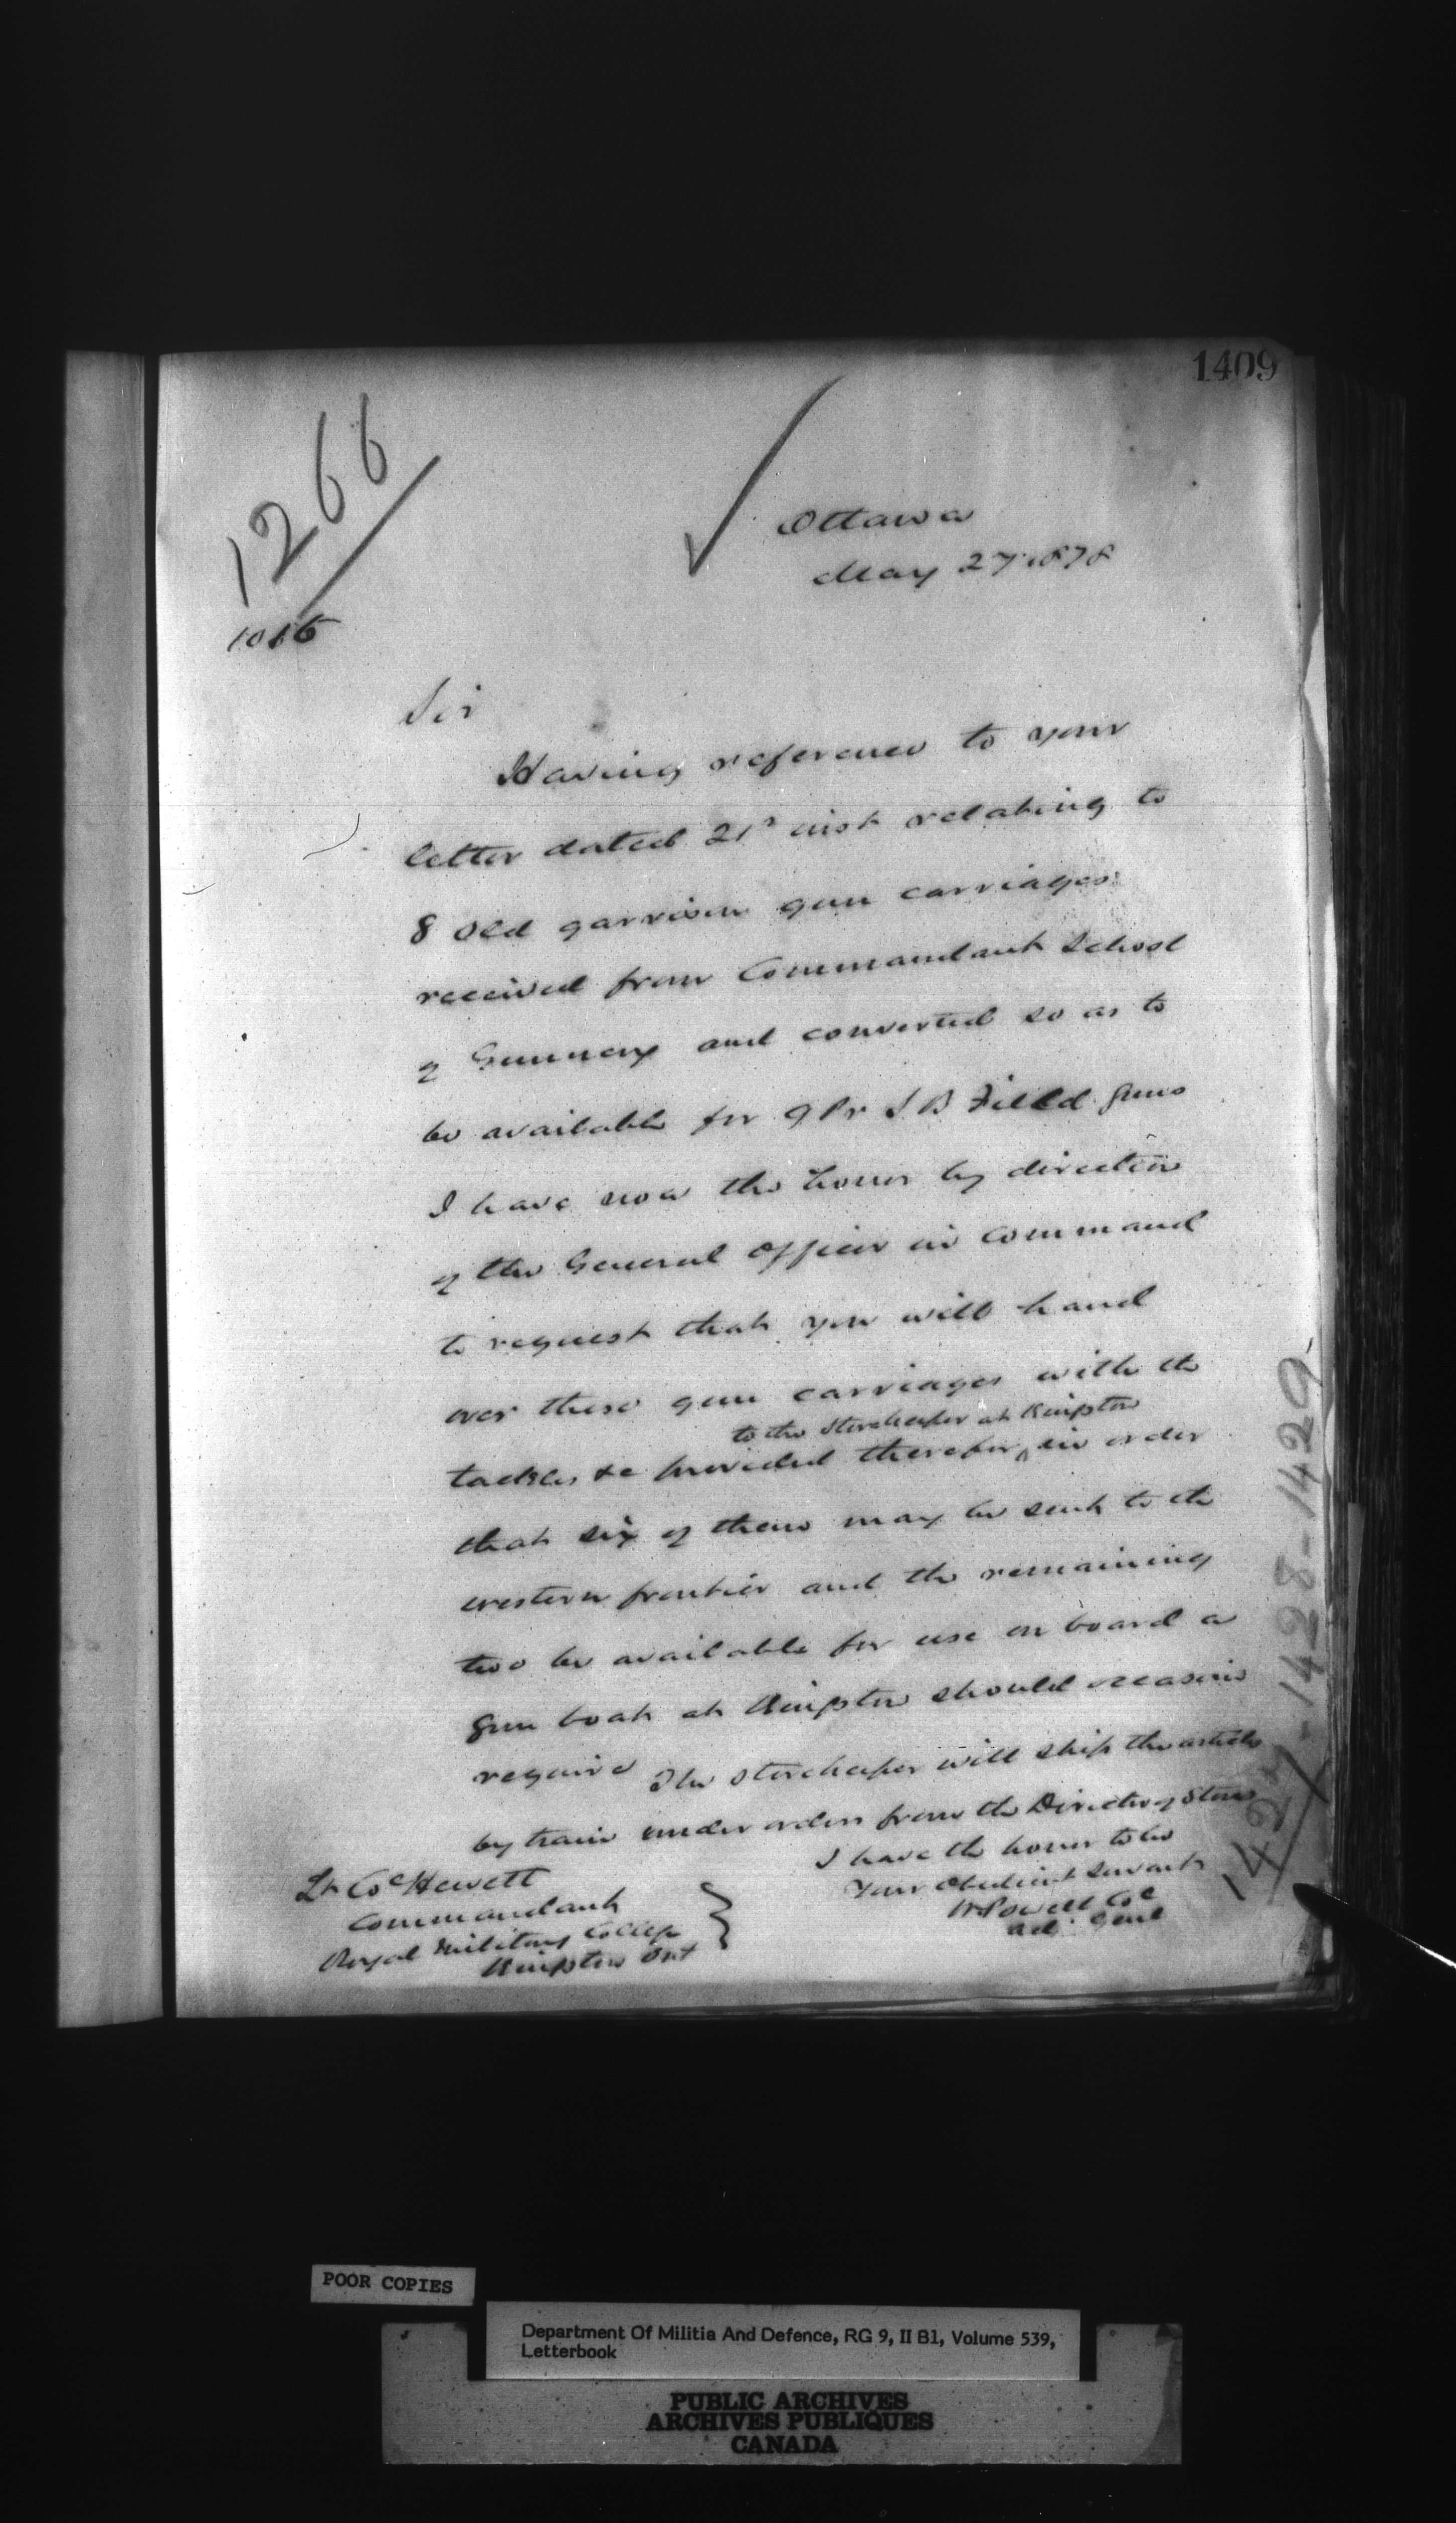 1409
1266
1016
Ottawa
May 27 1878
Sir
Having reference to your
letter dated 21st inst relating to
8 old garrison gun carriages
received from Commandant School
of Gunnery and converted so as to
be available for 9 Pr S B Field Guns
I have now the honor by direction
of the General Officer in Command
to request that you will hand
over these gun carriages with the
to the Storekeeper at Kingston
tackles &c provided therefor ^ in order
that six of them may be sent to the
western frontier and the remaining
two be available for use on board a
gun boat at Kingston should occasion
require The Storekeeper will ship the articles
by train under orders from the Director of Stores
I have the honor to be
Your Obedient Servant
W Powell Col
Adj. Genl
Lt Col Hewett
Commandant
Royal Military College
Kingston Ont
1427-1428-1429-
POOR COPIES
Department Of Militia And Defence, RG 9, II B1, Volume 539,
Letterbook
PUBLIC ARCHIVES
ARCHIVES PUBLIQUES
CANADA